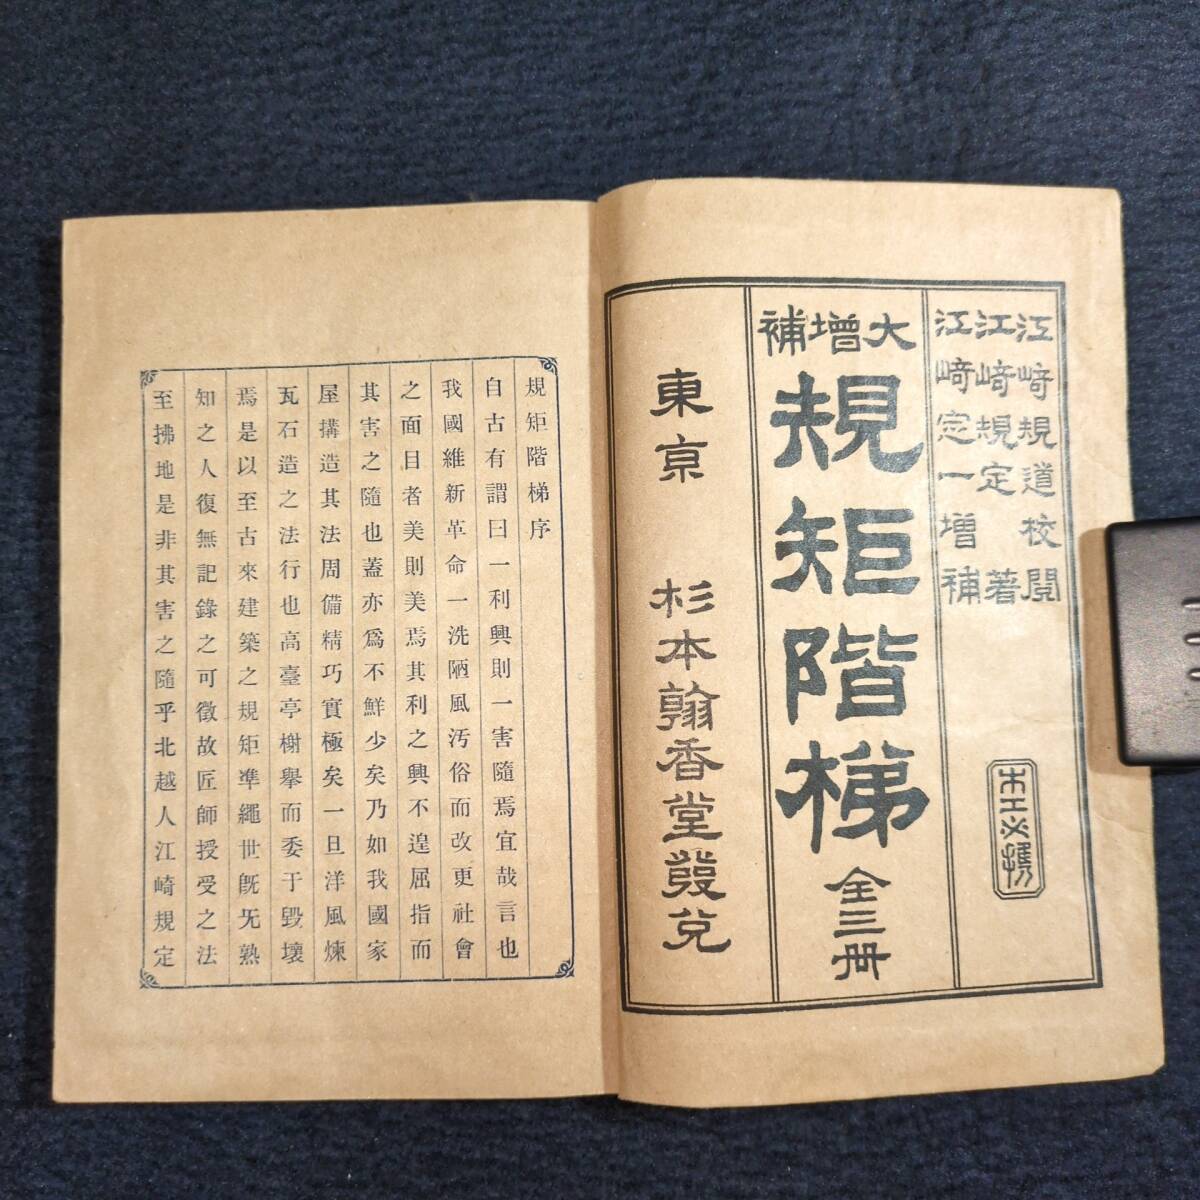 江﨑規道校閲
江﨑規定著
江﨑定一增補
木工必携
大增補
規矩階梯
全三冊
東京 杉本翰香堂發兌
規矩階梯序
自古有謂曰一利興則一害隨焉宜哉言也
我國維新革命一洗陋風汚俗而改更社會
之面目者美則美焉其利之興不遑屈指而
其害之隨也蓋亦爲不鮮少矣乃如我國家
屋搆造其法周備精巧實極矣一旦洋風煉
瓦石造之法行也高臺亭榭擧而委于毀壞
焉是以至古來建築之規矩準繩世旣旡熟
知之人復無記錄之可徵故匠師授受之法
至拂地是非其害之隨乎北越人江崎規定